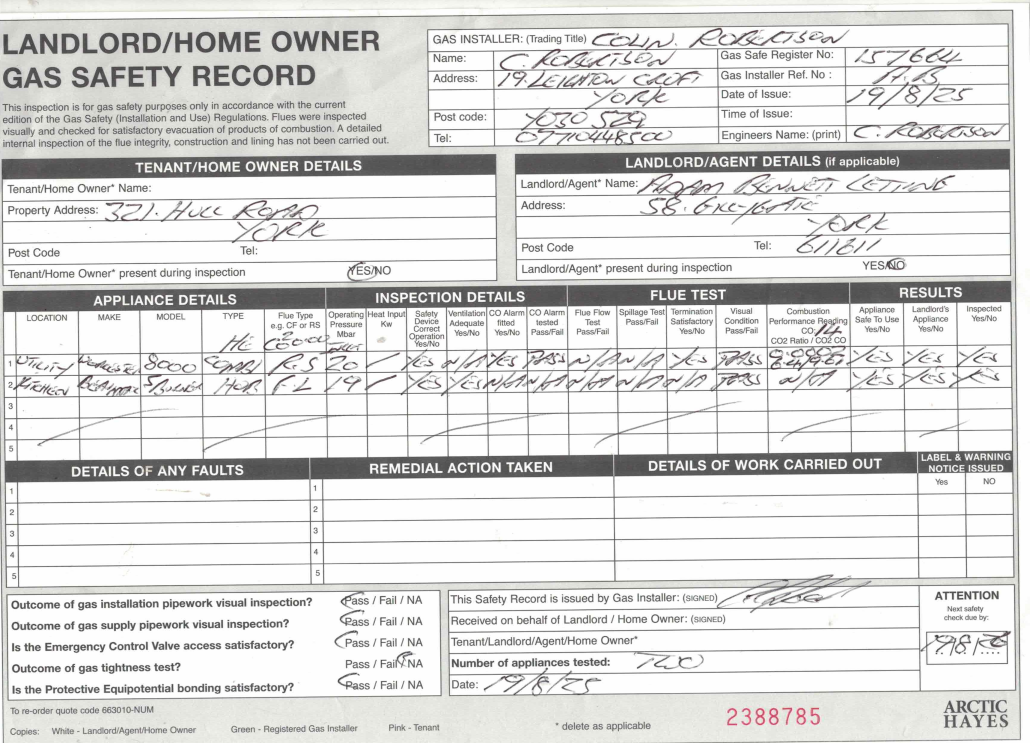 LANDLORD/HOME OWNER
GAS SAFETY RECORD
This inspection is for gas safety purposes only in accordance with the current
edition of the Gas Safety (Installation and Use) Regulations. Flues were inspected
visually and checked for satisfactory evacuation of products of combustion. A detailed
internal inspection of the flue integrity, construction and lining has not been carried out.
GAS INSTALLER: (Trading Title) COLIN. ROBERTSON
Name: C. ROBERTSON
Gas Safe Register No: 157664
Address: 19. LEIGHTON CROFT
YORK
Gas Installer Ref. No :
Date of Issue: 19/8/25
Post code: YO30 5
Time of Issue:
Tel: 07710448500
Engineers Name: (print) C. ROBERTSON
TENANT/HOME OWNER DETAILS
Tenant/Home Owner* Name:
Property Address: 321. HULL ROAD
YORK
Post Code Tel:
Tenant/Home Owner* present during inspection YES/NO
LANDLORD/AGENT DETAILS (if applicable)
Landlord/Agent* Name: ADAM BENNETT LETTING
Address: 58.
YORK
Post Code Tel: 611811
Landlord/Agent* present during inspection YES/NO
APPLIANCE DETAILS INSPECTION DETAILS FLUE TEST RESULTS
LOCATION MAKE MODEL TYPE Flue Type e.g. CF or RS Operating Pressure Mbar Heat Input Kw Safety Device Correct Operation Yes/No Ventilation Adequate Yes/No CO Alarm fitted Yes/No CO Alarm tested Pass/Fail Flue Flow Test Pass/Fail Spillage Test Pass/Fail Termination Satisfactory Yes/No Visual Condition Pass/Fail Combustion Performance Reading CO: 14 CO2 Ratio / CO2 CO Appliance Safe To Use Yes/No Landlord's Appliance Yes/No Inspected Yes/No
HE
1 UTILITY WORCESTER 8000 COMBI R.S 20 / YES N/A YES PASS N/A N/A YES PASS YES YES YES
2 KITCHEN 5 BURNER HOB F.L 19 / YES YES N/A N/A N/A N/A N/A PASS N/A YES YES YES
3
4
5
DETAILS OF ANY FAULTS REMEDIAL ACTION TAKEN DETAILS OF WORK CARRIED OUT LABEL & WARNING NOTICE ISSUED
Yes NO
1 1
2 2
3 3
4 4
5 5
Outcome of gas installation pipework visual inspection? Pass / Fail / NA
Outcome of gas supply pipework visual inspection? Pass / Fail / NA
Is the Emergency Control Valve access satisfactory? Pass / Fail / NA
Outcome of gas tightness test? Pass / Fail / NA
Is the Protective Equipotential bonding satisfactory? Pass / Fail / NA
This Safety Record is issued by Gas Installer: (SIGNED)
Received on behalf of Landlord / Home Owner: (SIGNED)
Tenant/Landlord/Agent/Home Owner*
Number of appliances tested: TWO
Date: 19/8/25
ATTENTION
Next safety
check due by:
19/8/26
To re-order quote code 663010-NUM
Copies: White - Landlord/Agent/Home Owner Green - Registered Gas Installer Pink - Tenant
* delete as applicable
2388785
ARCTIC
HAYES